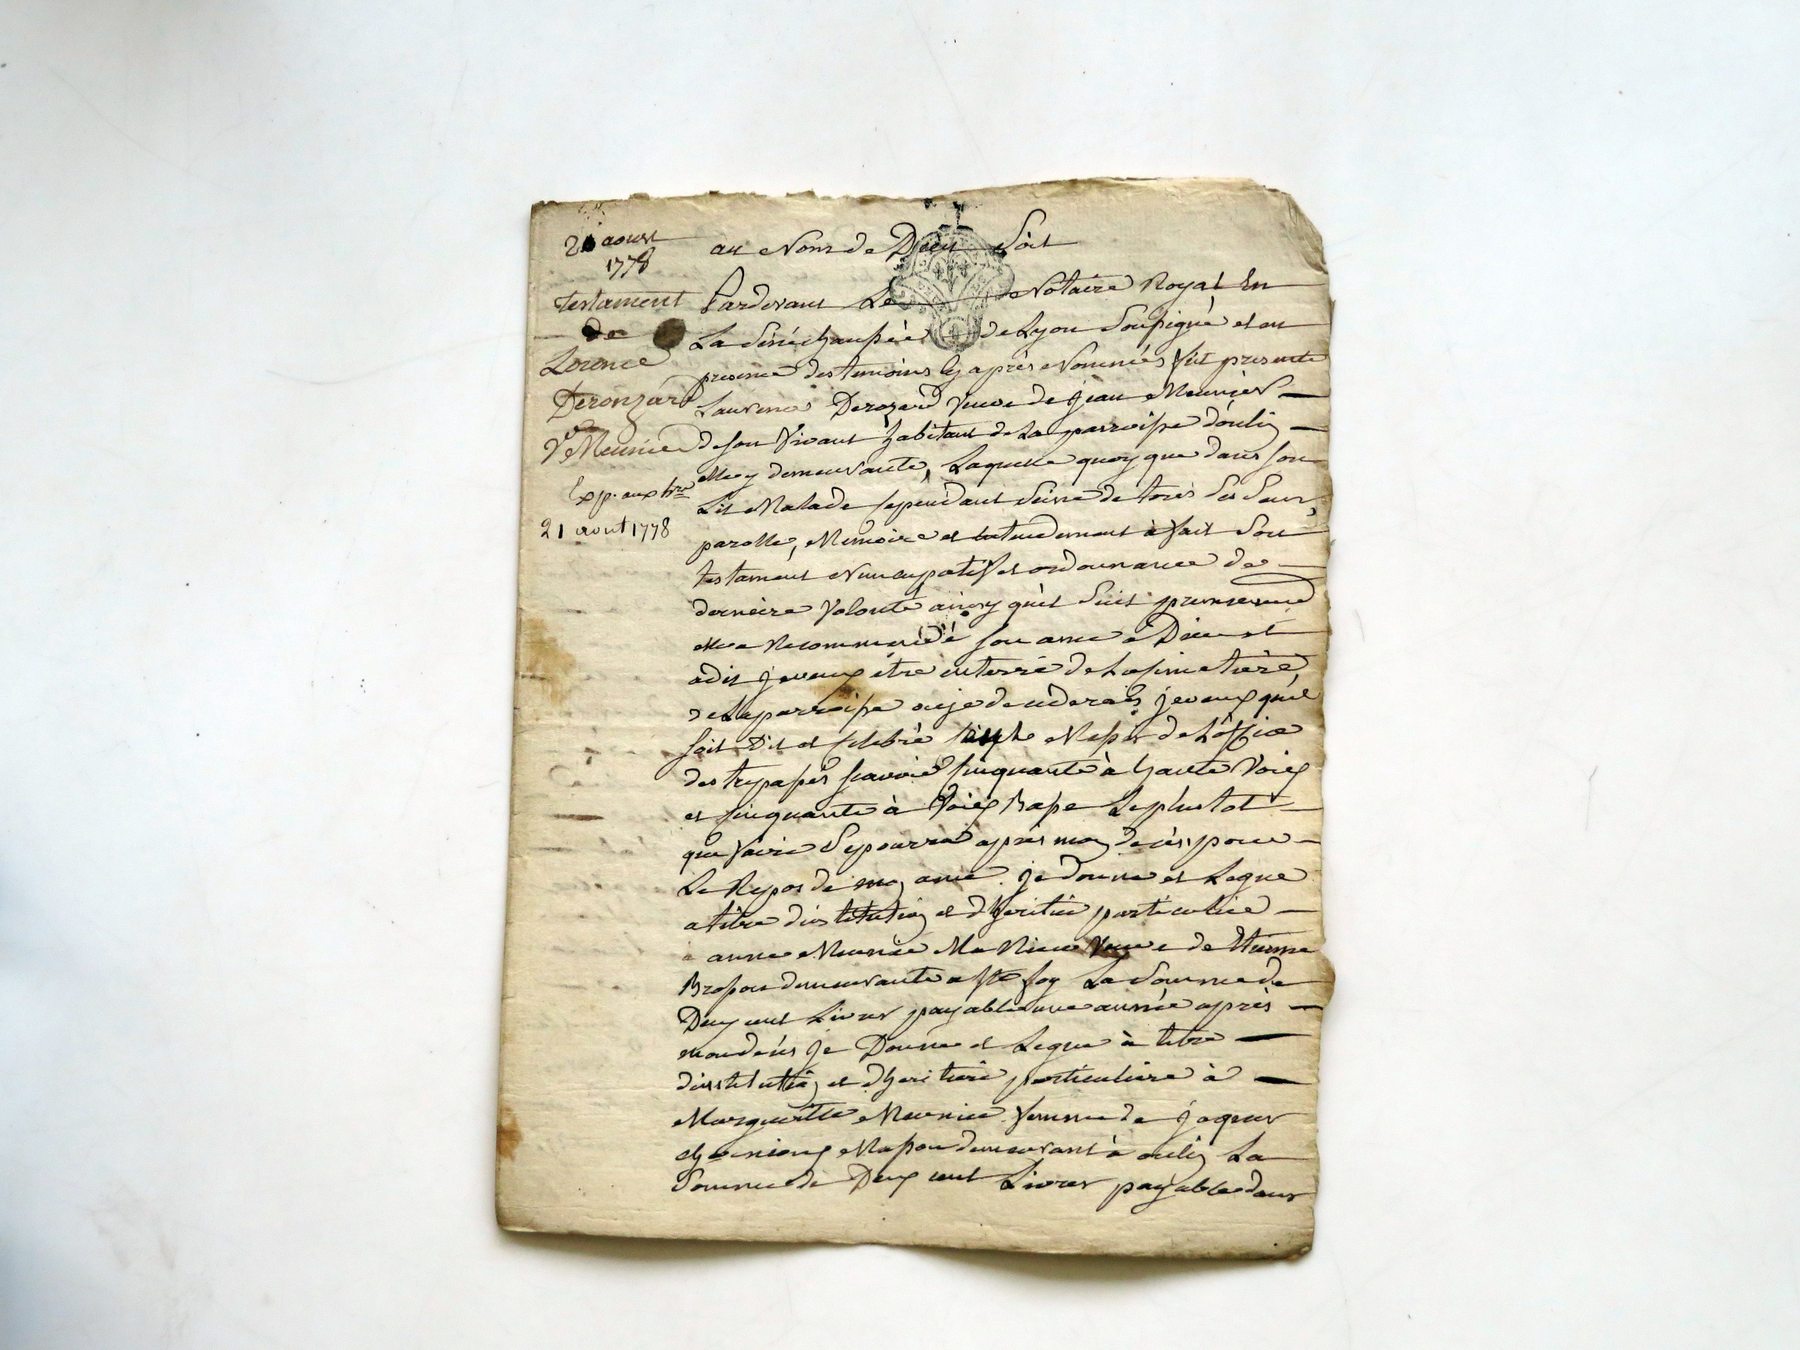 21 aoust
1778
testament
de
Lorence
Deronzard
Ve Meunier
Exp. aux
21 aout 1778
au Nom de Dieu Soit
Pardevant Le Notaire Royal En
La Sénéchaussée de Lyon Soussigné et en
presence des temoins cy après Nommés fût presente
Laurence Derozard veuve de jean Meunier
de son Vivant habitant de La parroisse d'oulin
elle y demeurante, Laquelle quoy que dans son
Lit Malade cependant Seine de tous Ses Sens,
parolle, Memoire et entendement à fait Son
testament Nuncupatif et ordonnance de
derniere Volonté ainsy qu'il Suit premierement
elle a Recommandé son ame à Dieu et
à dit je veux être enterré de La simetière
de La parroisse ou je decederais, je veux qu'il
soit Dit et selebré Messes de L'office
des trepassés scavoir sinquante à haute Voix
et sinquante à Voix basse Le plustot
que faire Se pourra après mon decès pour
Le Repos de mon ame. je donne et Legue
a titre d'institution et d'heritiere particuliere
à anne Meunier Ma Niece Veuve de
demeurante a Ste foy La Somme de
Deux cent Livres payable une année après
mon decès je Donne et Legue à titre
d'institution et d'heritiere particuliere à
Margueritte Meunier femme de jaques
demeurant à oulin La
Somme de Deux cent Livres payable dans